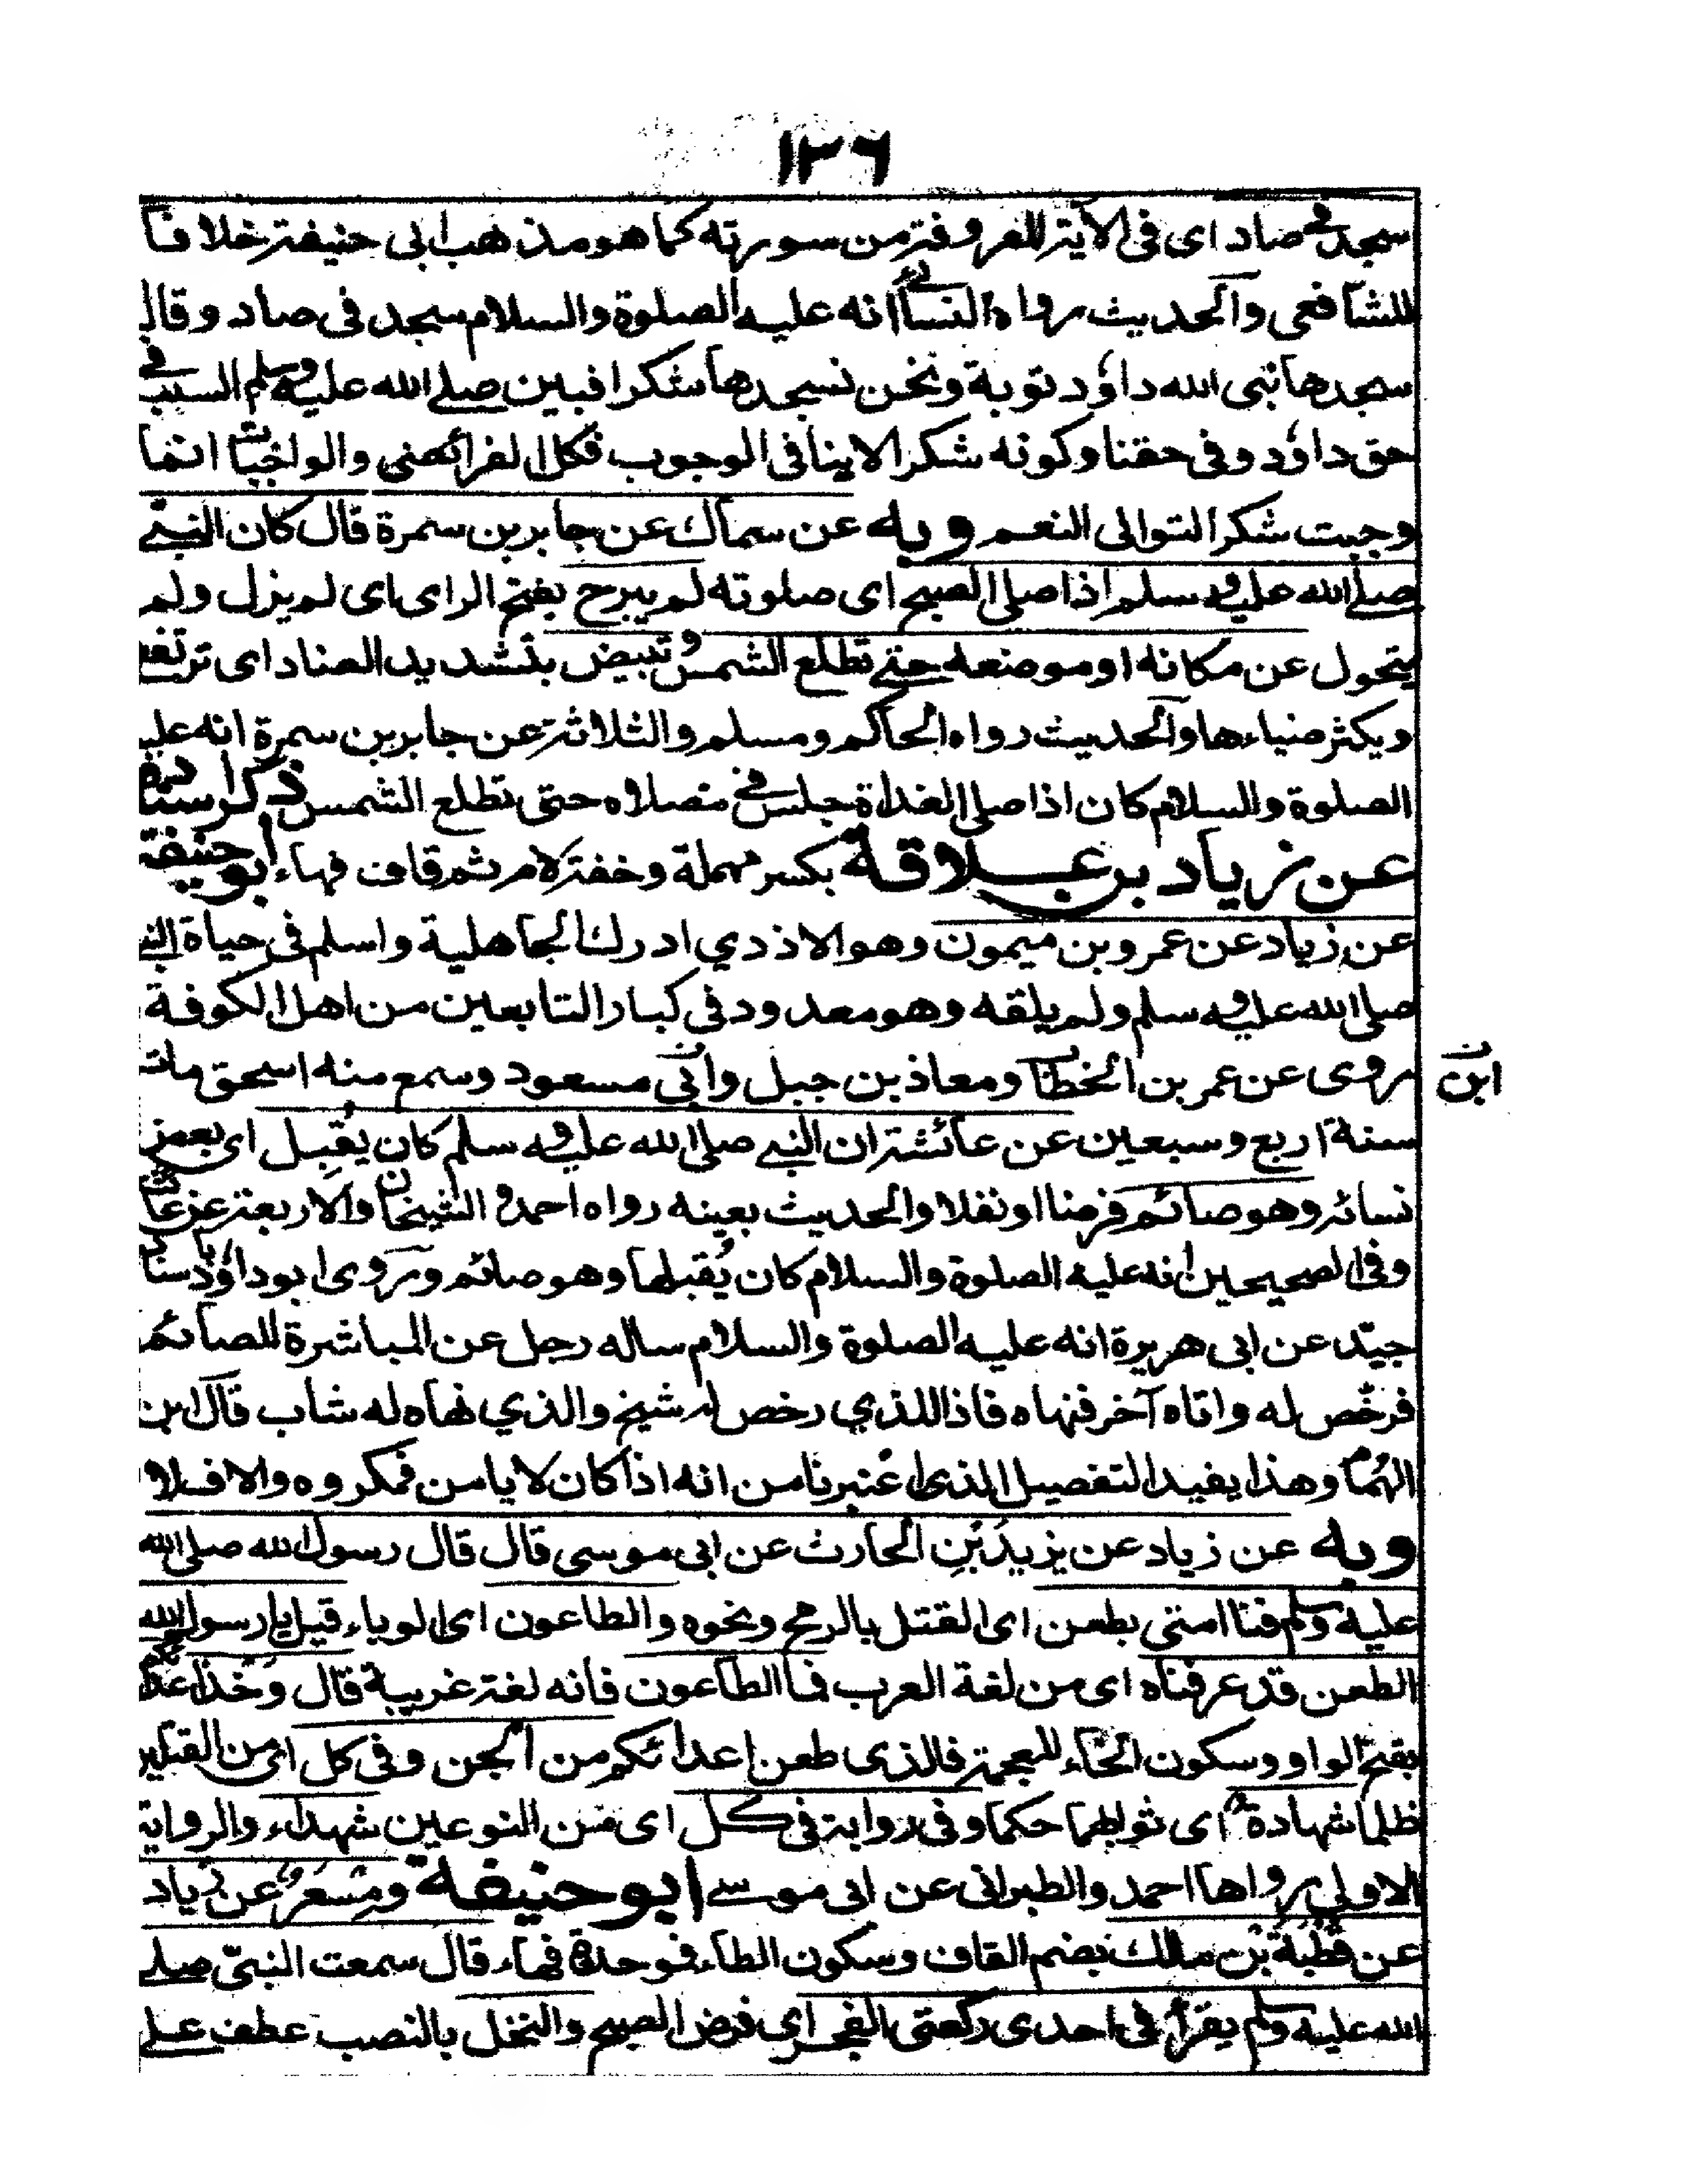 ١٣٦
سجد فى صاد اى فى الاية المعروفة من سورته كما هو مذهب ابى حنيفة خلافا
للشافعى والحديث رواه النسائى انه عليه الصلوة والسلام سجد فى صاد وقال
سجدها نبى الله داؤد توبة ونحن نسجدها شكرا فبين صلى الله عليه وسلم السبب فى
حق داؤد وفى حقنا وكونه شكرا لا ينافى الوجوب فكل الفرائض والواجبات انما
وجبت شكرا لتوالى النعم وبه عن سماك عن جابر بن سمرة قال كان النبى
صلى الله عليه وسلم اذا صلى الصبح اى صلوته لم يبرح بفتح الراى اى لم يزل ولم
يتحول عن مكانه او موضعه حتى تطلع الشمس وتبيض بتشديد الضاد اى ترتفع
ويكثر ضياءها والحديث رواه الحاكم ومسلم والثلاثة عن جابر بن سمرة انه عليه
الصلوة والسلام كان اذا صلى الغداة جلس فى مصلاه حتى تطلع الشمس ذكر اسناده
عن زياد بن علاقة بكسر مهملة وخفة لام ثم قاف فهاء ابو حنيفة
عن زياد عن عمرو بن ميمون وهو الاذدي ادرك الجاهلية واسلم فى حياة النبى
صلى الله عليه وسلم ولم يلقه وهو معدود فى كبار التابعين من اهل الكوفة
روى عن عمر بن الخطاب ومعاذ بن جبل وابى مسعود وسمع منه اسحق مات
ابن ن
سنة اربع وسبعين عن عائشة ان النبى صلى الله عليه وسلم كان يقبل اى بعض
نسائه وهو صائم فرضا او نفلا والحديث بعينه رواه احمد والشيخان والاربعة عن عائشة
وفى الصحيحين انه عليه الصلوة والسلام كان يُقبلها وهو صائم وروى ابو داؤد باسناد
جيّد عن ابى هريرة انه عليه الصلوة والسلام ساله رجل عن المباشرة للصائم
فرخّص له واتاه آخر فنهاه فاذا الذي رخص له شيخ والذي نهاه له شاب قال ابن
الهُمام وهذا يفيد التفصيل الذى اعتبرنا من انه اذا كان لا يامن فمكروه والا فلا
وبه عن زياد عن يزيدَ بْنِ الحارث عن ابى موسى قال قال رسول الله صلى الله
عليه وسلم فنا امتى بطعن اى القتل بالرمح ونحوه والطاعون اى الوباء قيل يا رسول الله
الطعن قد عرفناه اى من لغة العرب فما الطاعون فانه لغة غريبة قال وَخْذ اعدائكم
بفتح الواو وسكون الخاء المعجمة فالذى طعن اعدائكم من الجن وفى كل اى من القتلين
ظلما شهادة اى ثوابهما حكما وفى رواية فى كل اى من النوعين شهداء والرواية
الاولى رواها احمد والطبرانى عن ابى موسى ابو حنيفة ومِسْعَرٌ عن زياد
عن قُطْبَةَ بْنِ مالك بضم القاف وسكون الطاء فوحدة فهاء قال سمعت النبىّ صلى
الله عليه وسلم يقرأ فى احدى ركعتى الفجر اى فرض الصبح والنخل بالنصب عطف على